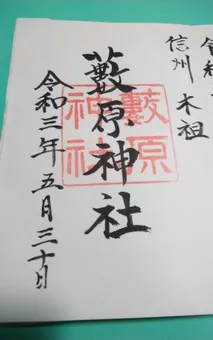 信州 木祖
藪原神社
令和三年五月三十日
藪原
神社